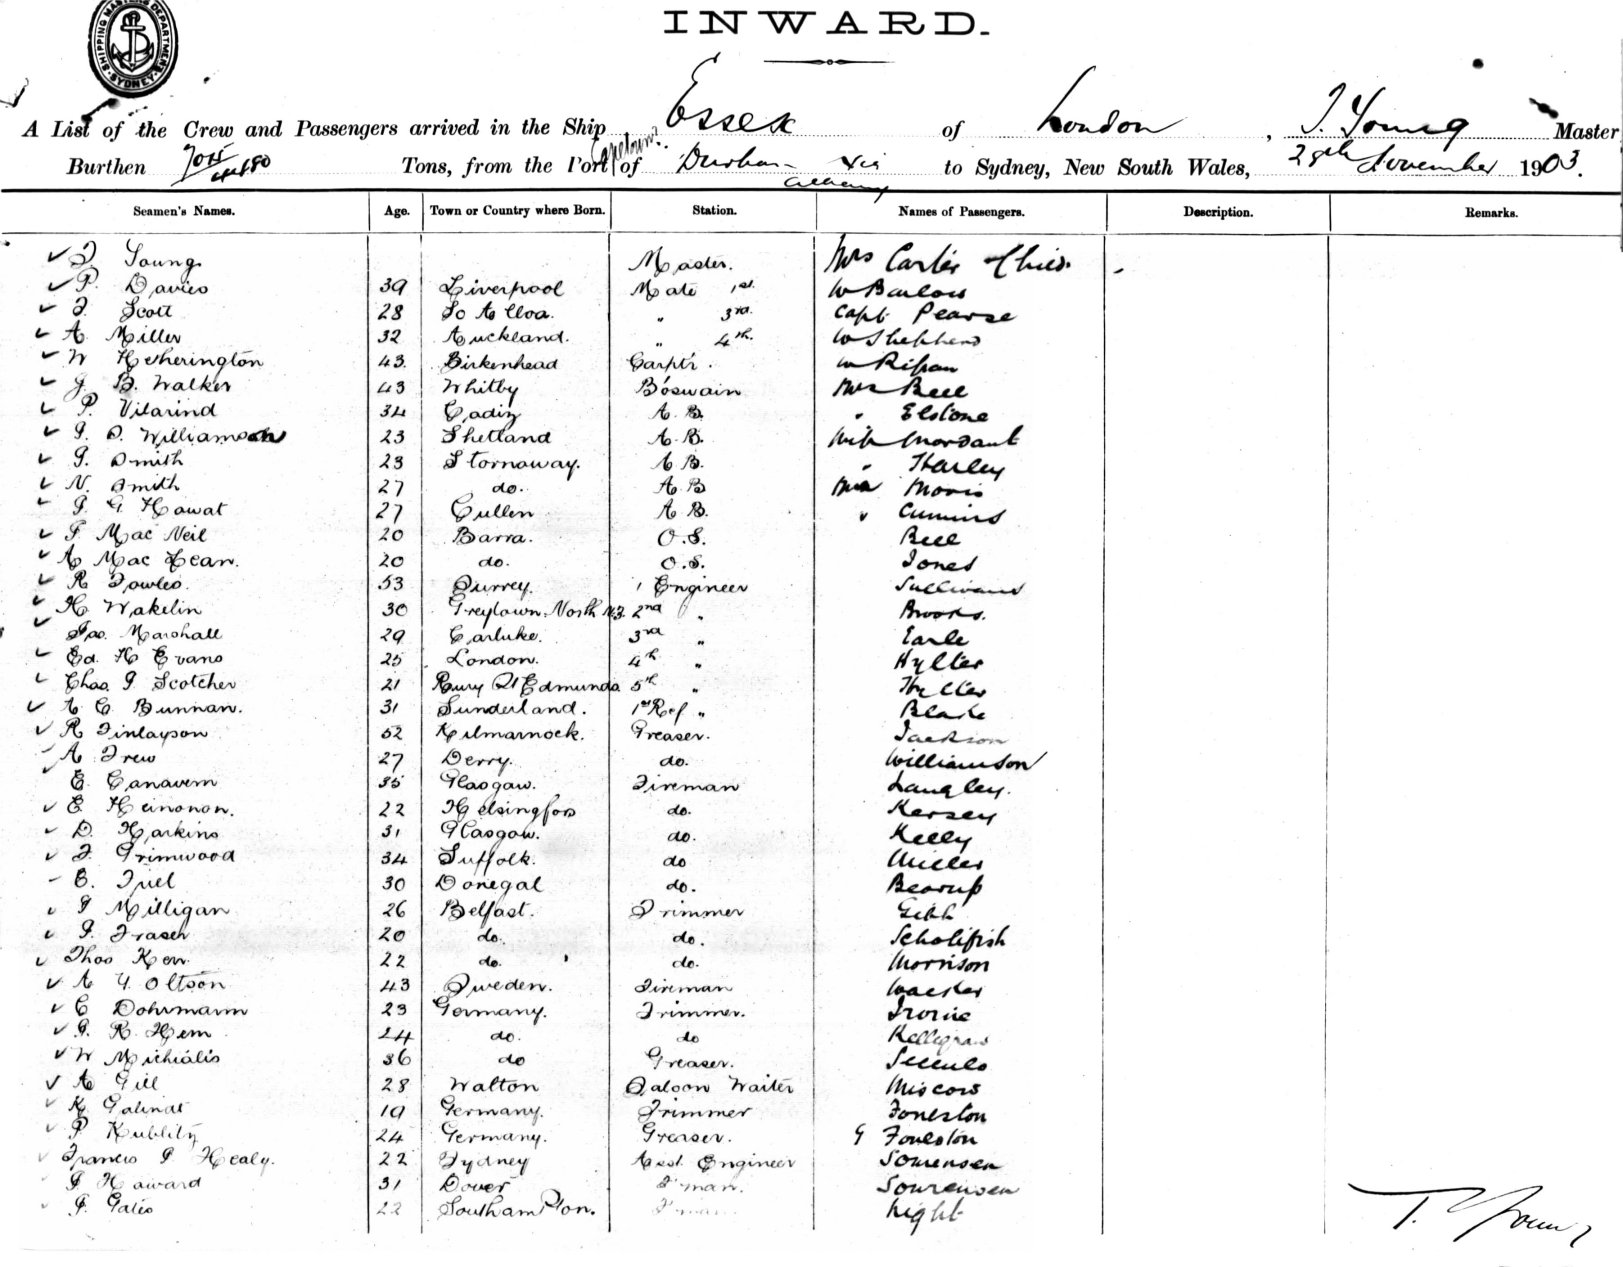 SHIPPING MASTERS DEPARTMENT SYDNEY
INWARD.
A List of the Crew and Passengers arrived in the Ship Essex of London, T. Young Master
Burthen Tons, from the Port of Durban via to Sydney, New South Wales, 28th November 1903.
Capetown
Albany
Seamen's Names. Age. Town or Country where Born. Station. Names of Passengers. Description. Remarks.
T. Young Master. Mrs Carter & Child.
P. Davies 39 Liverpool Mate 1st. W Barlow
T. Scott 28 So Alloa. " 3rd. Capt. Pearse
A. Miller 32 Auckland. " 4th. W Shephend
W Hetherington 43. Birkenhead Carptr. W
J. B. Walker 43 Whitby Bo'swain Mrs Bell
P. Vilarind 34 Cadiz A.B. " Elstone
J. D. Williamson 23 Shetland A.B. Miss Mordaunt
J. Smith 23 Stornoway. A.B. " Harley
N. Smith 27 do. A.B Miss Morris
J. G. Howat 27 Cullen A B. " Cummins
F. Mac Neil 20 Barra. O.S. Bell
A Mac Lean. 20 do. O.S. Jones
R Fowles. 53 Surrey. 1 Engineer Sullivan
H Wakelin 30 Greytown. North N.Z. 2nd " Brooks.
Jas. Marshall 29 Carluke. 3rd " Earle
Ed. H Evans 25 London. 4th " Hylter
Chas. J. Scotcher 21 Bury St Edmunds 5th "
A C Bunnan. 31 Sunderland. 1st Ref " Blake
R Finlayson 52 Kilmarnock. Greaser. Jackson
A Frew 27 Derry. do. Williamson
E. Canavern 35 Glasgow. Fireman Langley.
E Heinonon. 22 Helsingfors do. Kersey
D. Harkins 31 Glasgow. do. Kelly
F. Grimwood 34 Suffolk. do Miller
E. Friel 30 Donegal do. Bearup
J Milligan 26 Belfast. Trimmer Gibb
J. Fraser 20 do. do. Scholifish
Thos Kerr. 22 do. do. Morrison
A Y Oltson 43 Sweden. Fireman Walker
C Dohrmann 23 Germany. Trimmer. Irvine
J. R. Hem 24 do. do
W Michialis 36 do Greaser.
A Gill 28 Walton Saloon Waiter Miscow
K. Galinat 19 Germany. Trimmer Foulston
P Kublitz 24 Germany. Greaser. G Foulston
Francis J Healy. 22 Sydney Asst. Engineer Sorrensen
J Haward 31 Dover F'man. Sourensen
J. Gates 22 Southampton. F'man Night
T. Young